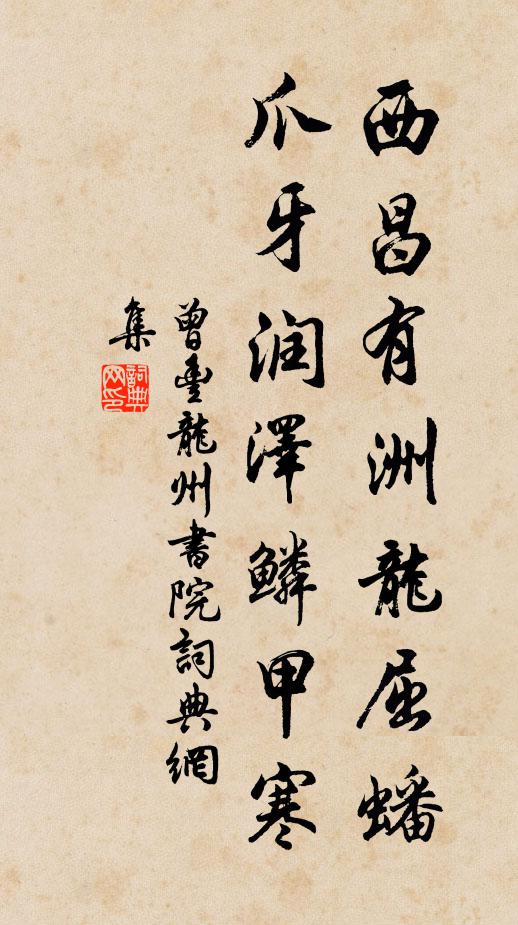 西昌有洲龍屈蟠
爪牙润澤鱗甲寒
曾豊龍州書院詞典網
集
詞典网印